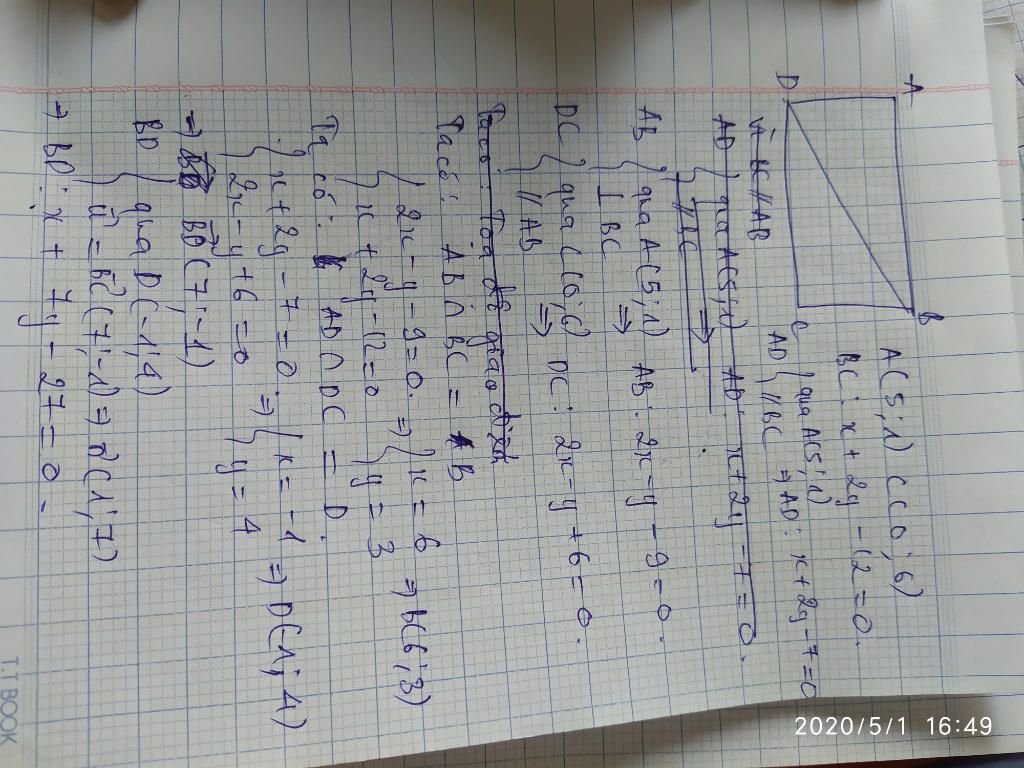 A B
D C
A(5;1) C(0;6)
BC: x + 2y - 12 = 0.
AD { qua A(5;1)
// BC ⇒ AD: x + 2y - 7 = 0
Vì BC // AB
AD { qua A(5;1) AD: x + 2y - 7 = 0.
// BC ⇒
AB { qua A(5;1) AB: 2x - y - 9 = 0.
⊥ BC ⇒
DC { qua C(0;6) DC: 2x - y + 6 = 0.
// AB ⇒
Ta có: Tọa độ giao điểm
Ta có: AB ∩ BC = B
{ 2x - y - 9 = 0. ⇒ { x = 6 ⇒ B(6;3)
x + 2y - 12 = 0 y = 3
Ta có: AD ∩ DC = D.
{ x + 2y - 7 = 0. ⇒ { x = -1 ⇒ D(-1;4)
2x - y + 6 = 0 y = 4
⇒ BD(7;-1)
BD { qua D(-1;4)
u = BD(7;-1) ⇒ n(1;7)
→ BD: x + 7y - 27 = 0.
T.T BOOK
2020/5/1 16:49